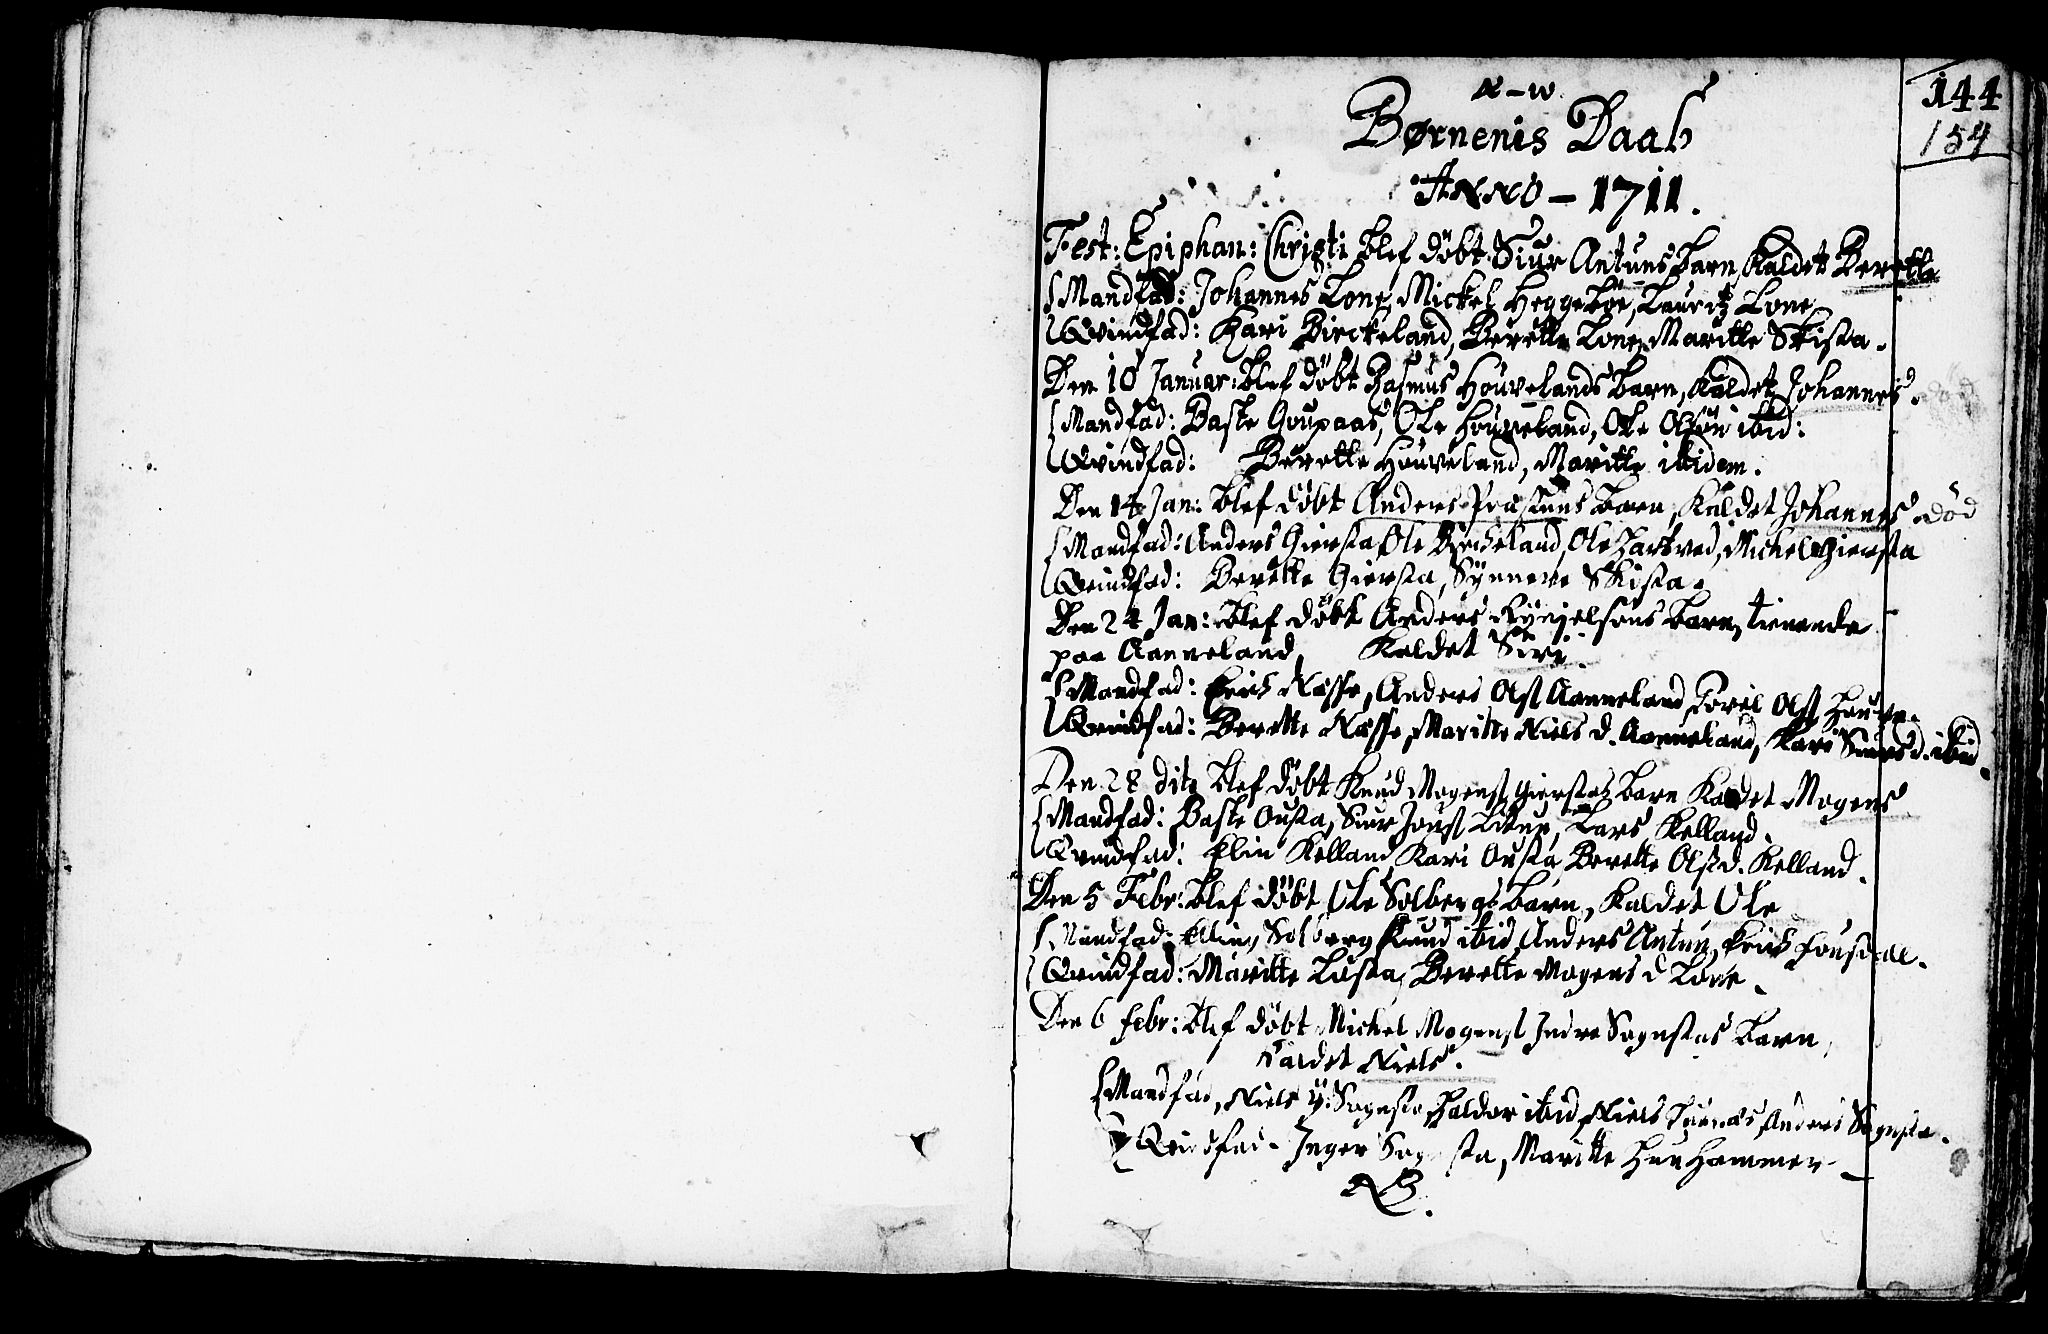 α–ω
144
Børnenis Daab
154
ANNO – 1711.
Fest: Epiphan: Christi blef döbt Siur Antuns barn, Kaldet Berette
Mandfad: Johannes Lone, Mickel Heggeböe, Lauritz Lone
Qvindfad: Kari Birckeland, Berette Lone, Maritte Skista.
Den 10 Januar: blef döbt Rasmus Houvelands barn, Kaldet Johannes.
Mandfad: Baste Goupaas, Ole Houveland, Ole Olsön ibid:
Qvindfad: Berette Houveland, Maritte ibidem.
Den 14 Jan: blef döbt Anders Præstuns barn, Kaldet Johannes död
Mandfad: Anders Giersta, Ole Birkeland, Ole Hartved, Michel Giersta
Qvindfad: Berette Giersta, Synneve Skista.
Den 24 Jan: blef döbt Anders barn, tienende
paa Aanneland, Kaldet Siri.
Mandfad: Erich Næsse, Anders Ols Aanneland, Ols
Qvindfad: Berette Næsse, Maritte Niels d. Aanneland, Kari Siurs d. ibid.
Den 28 dito blef döbt Knud Mogens Gierstas barn Kaldet Mogens
Mandfad: Baste Ousta, Siur Jons Lars Kelland.
Qvindfad: Elin Kelland Kari Ousta Berette Ols d. Kelland.
Den 5 Febr: blef döbt Ole Solbergs barn, Kaldet Ole
Mandfad: Solberg Knud ibid Anders Antun, Erich Fousdal.
Qvindfad: Maritte Berette Mogens d Lone.
Den 6 Febr: blef döbt Michel Mogens Indre Sognstas barn,
Kaldet Niels.
Mandfad, Niels Y: Sognsta, Haldor ibid, Niels Anders Sognsta.
Qvindfad – Inger Sognsta, Maritte Hammer
NB.